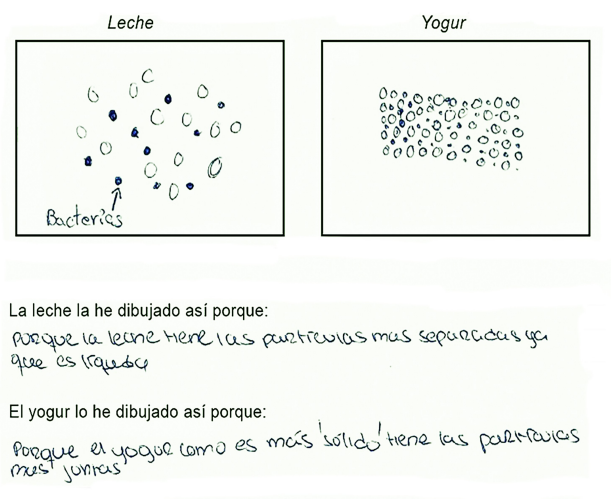 Leche
Yogur
Bacterias
La leche la he dibujado así porque:
porque la leche tiene las partículas mas separadas ya
que es líquida
El yogur lo he dibujado así porque:
Porque el yogur como es más 'sólido' tiene las partículas
mas 'juntas'